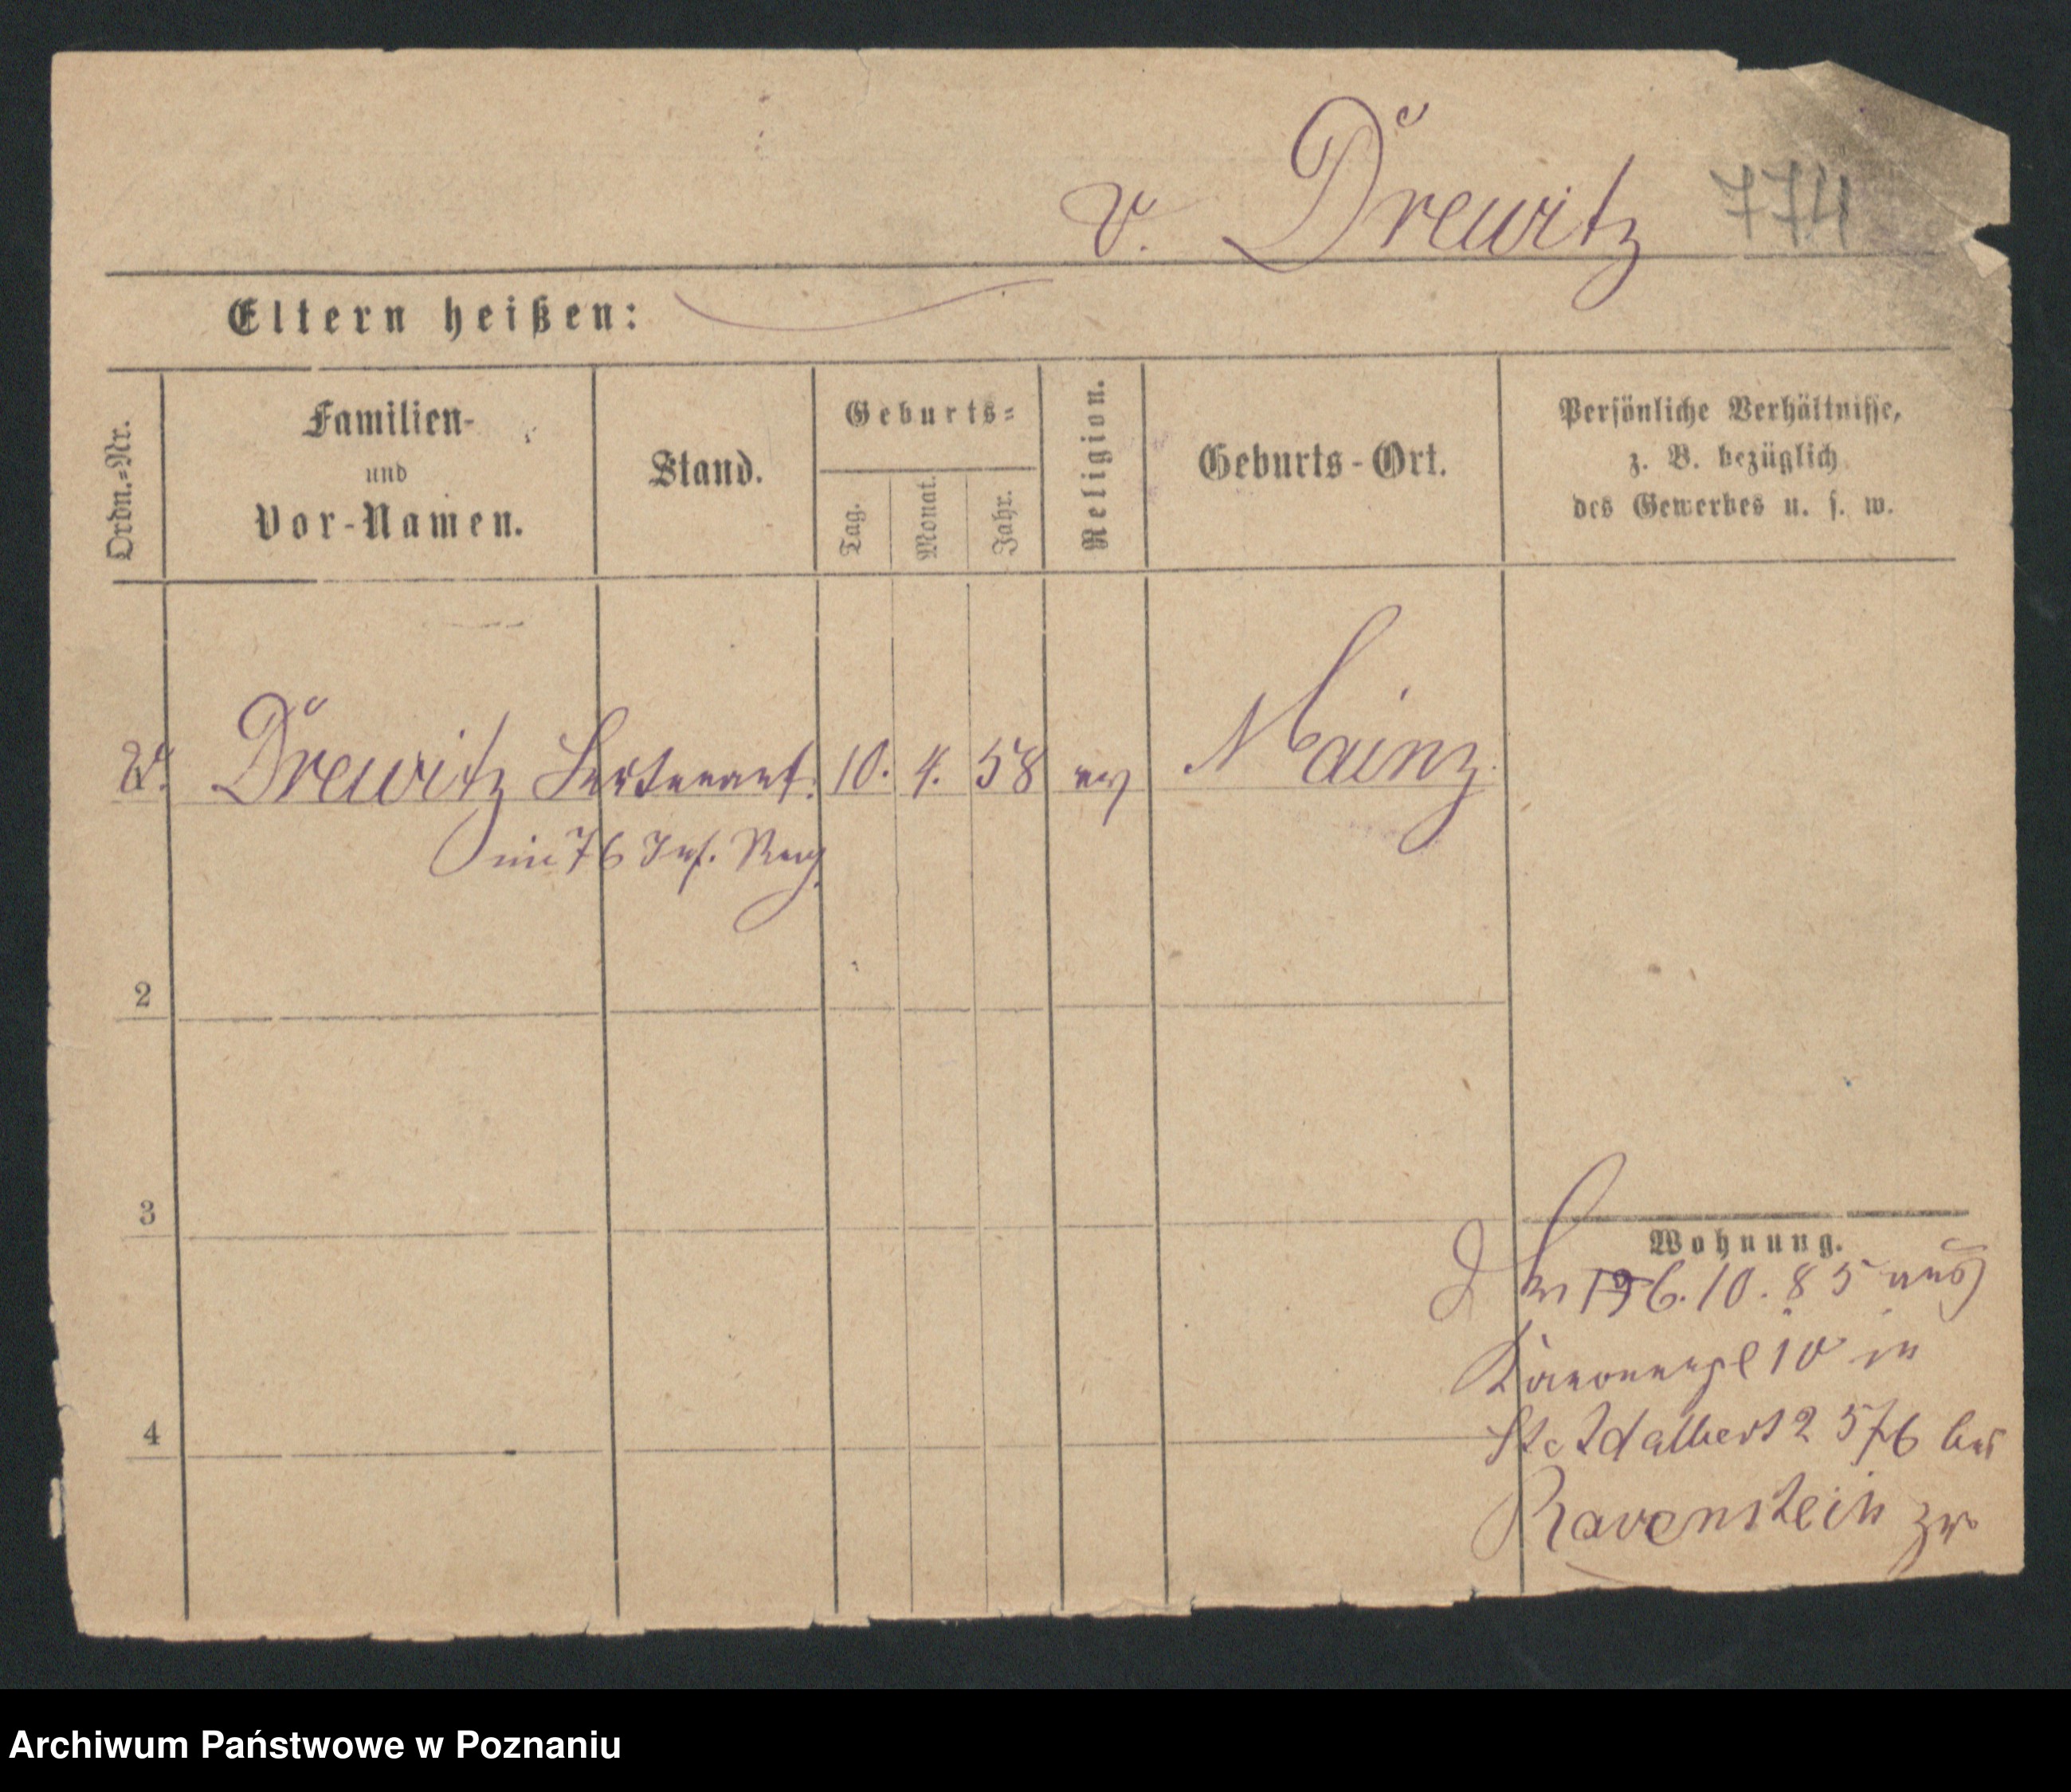 v. Drewitz 774
Eltern heißen:
Ordn.-Nr.
Familien-
und
Vor-Namen.
Stand.
Geburts-
Tag.
Monat.
Jahr.
Religion.
Geburts-Ort.
Persönliche Verhältnisse,
z. B. bezüglich
des Gewerbes u. s. w.
v. Drewitz Lieutenant. 10. 4. 58 ev Mainz
im 76 Inf. Reg.
2
3
4
Wohnung.
6.10.85 aus
Kanonenpl 10 in
St. Adalbert 2 bei
Ravenstein zu
Archiwum Państwowe w Poznaniu